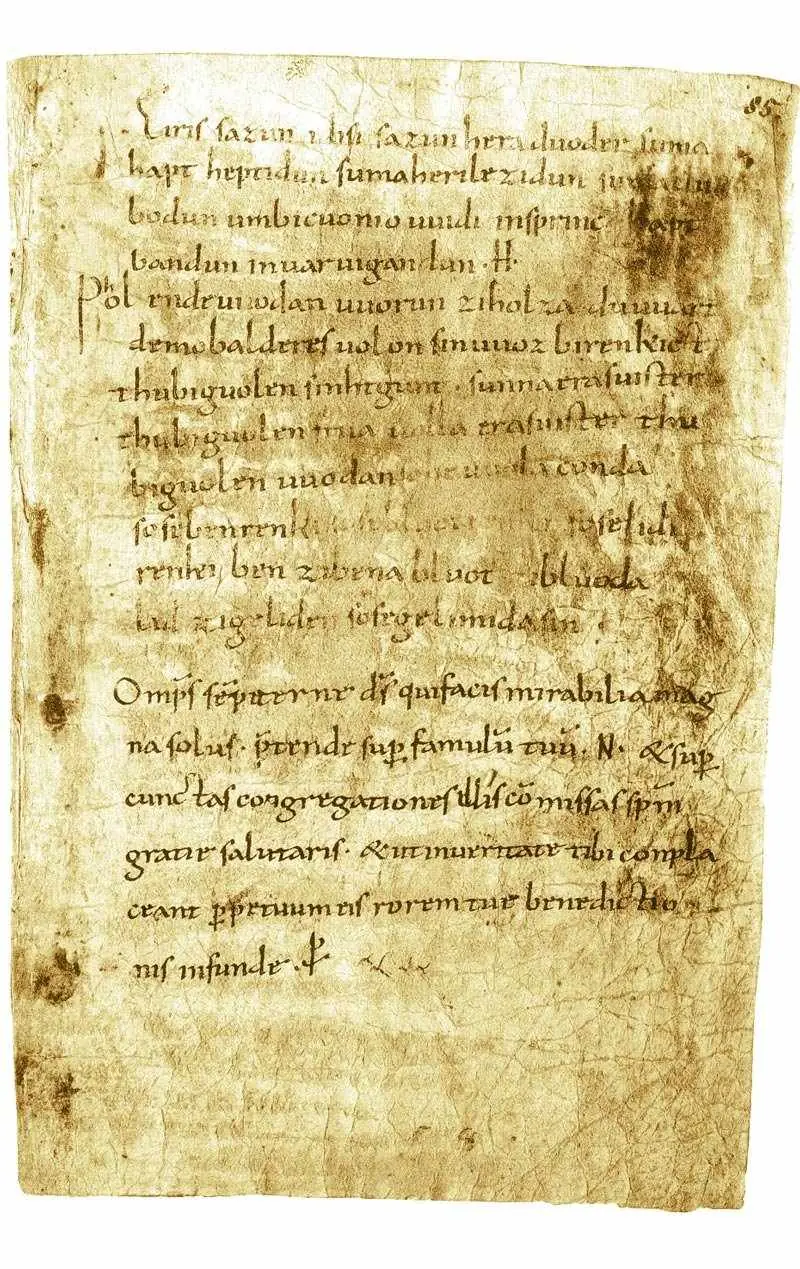 85
Eiris sazun idisi sazun hera duoder suma
hapt heptidun sumaherilezidun sumaclu
bodun umbicuonio uuidi insprinc hapt
bandun inuaruigandun · H ·
Phol endeuuodan uuorun ziholza du uuart
demobalderes uolon sinuuoz birenkict
thubiguolen sinhtgunt · sunnaerasuister
thubiguolen friia uolla erasuister thu
biguolen uuodan sohe uuola conda
sosebenrenki sosebluotrenki soselidi
renki ben zibena bluot zibluoda
lid zigeliden sosegelimidasin
Omp̄s sēpiterne ds̄ quifacis mirabilia mag
na solus · p̄tende sup̲ famulū tuū · N · &sup̲
cunctas congregationes illis cō missas spm̄
gratie salutaris · &utinueritate tibi conpla
ceant p̲petuum eis rorem tue benedictio
nis infunde ·